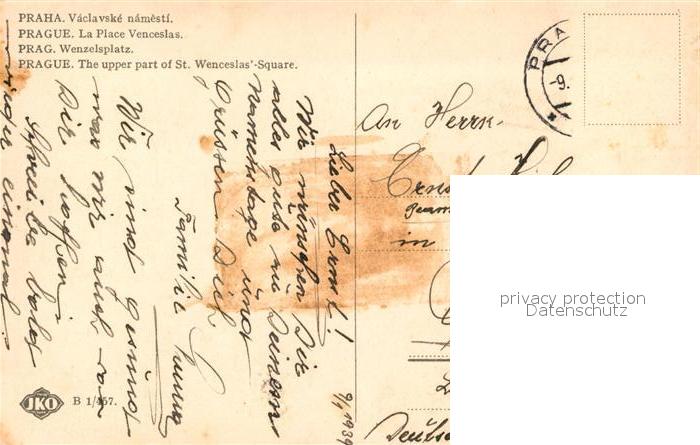 PRAHA. Václavské náměstí.
PRAGUE. La Place Venceslas.
PRAG. Wenzelsplatz.
PRAGUE. The upper part of St. Wenceslas'-Square.
PRA
-9.
An Herrn
Ernst
in
Deutsc
privacy protection
Datenschutz
9/1 1939
Lieber Ernst!
Wir wünschen Dir
alles gute zu Deinem
Namenstage und
Grüssen Dich
Familie
Wir sind gesund
was wir auch von
Dir hoffen.
Schreibe bald
wieder einmal.
JKO
B 1/457.